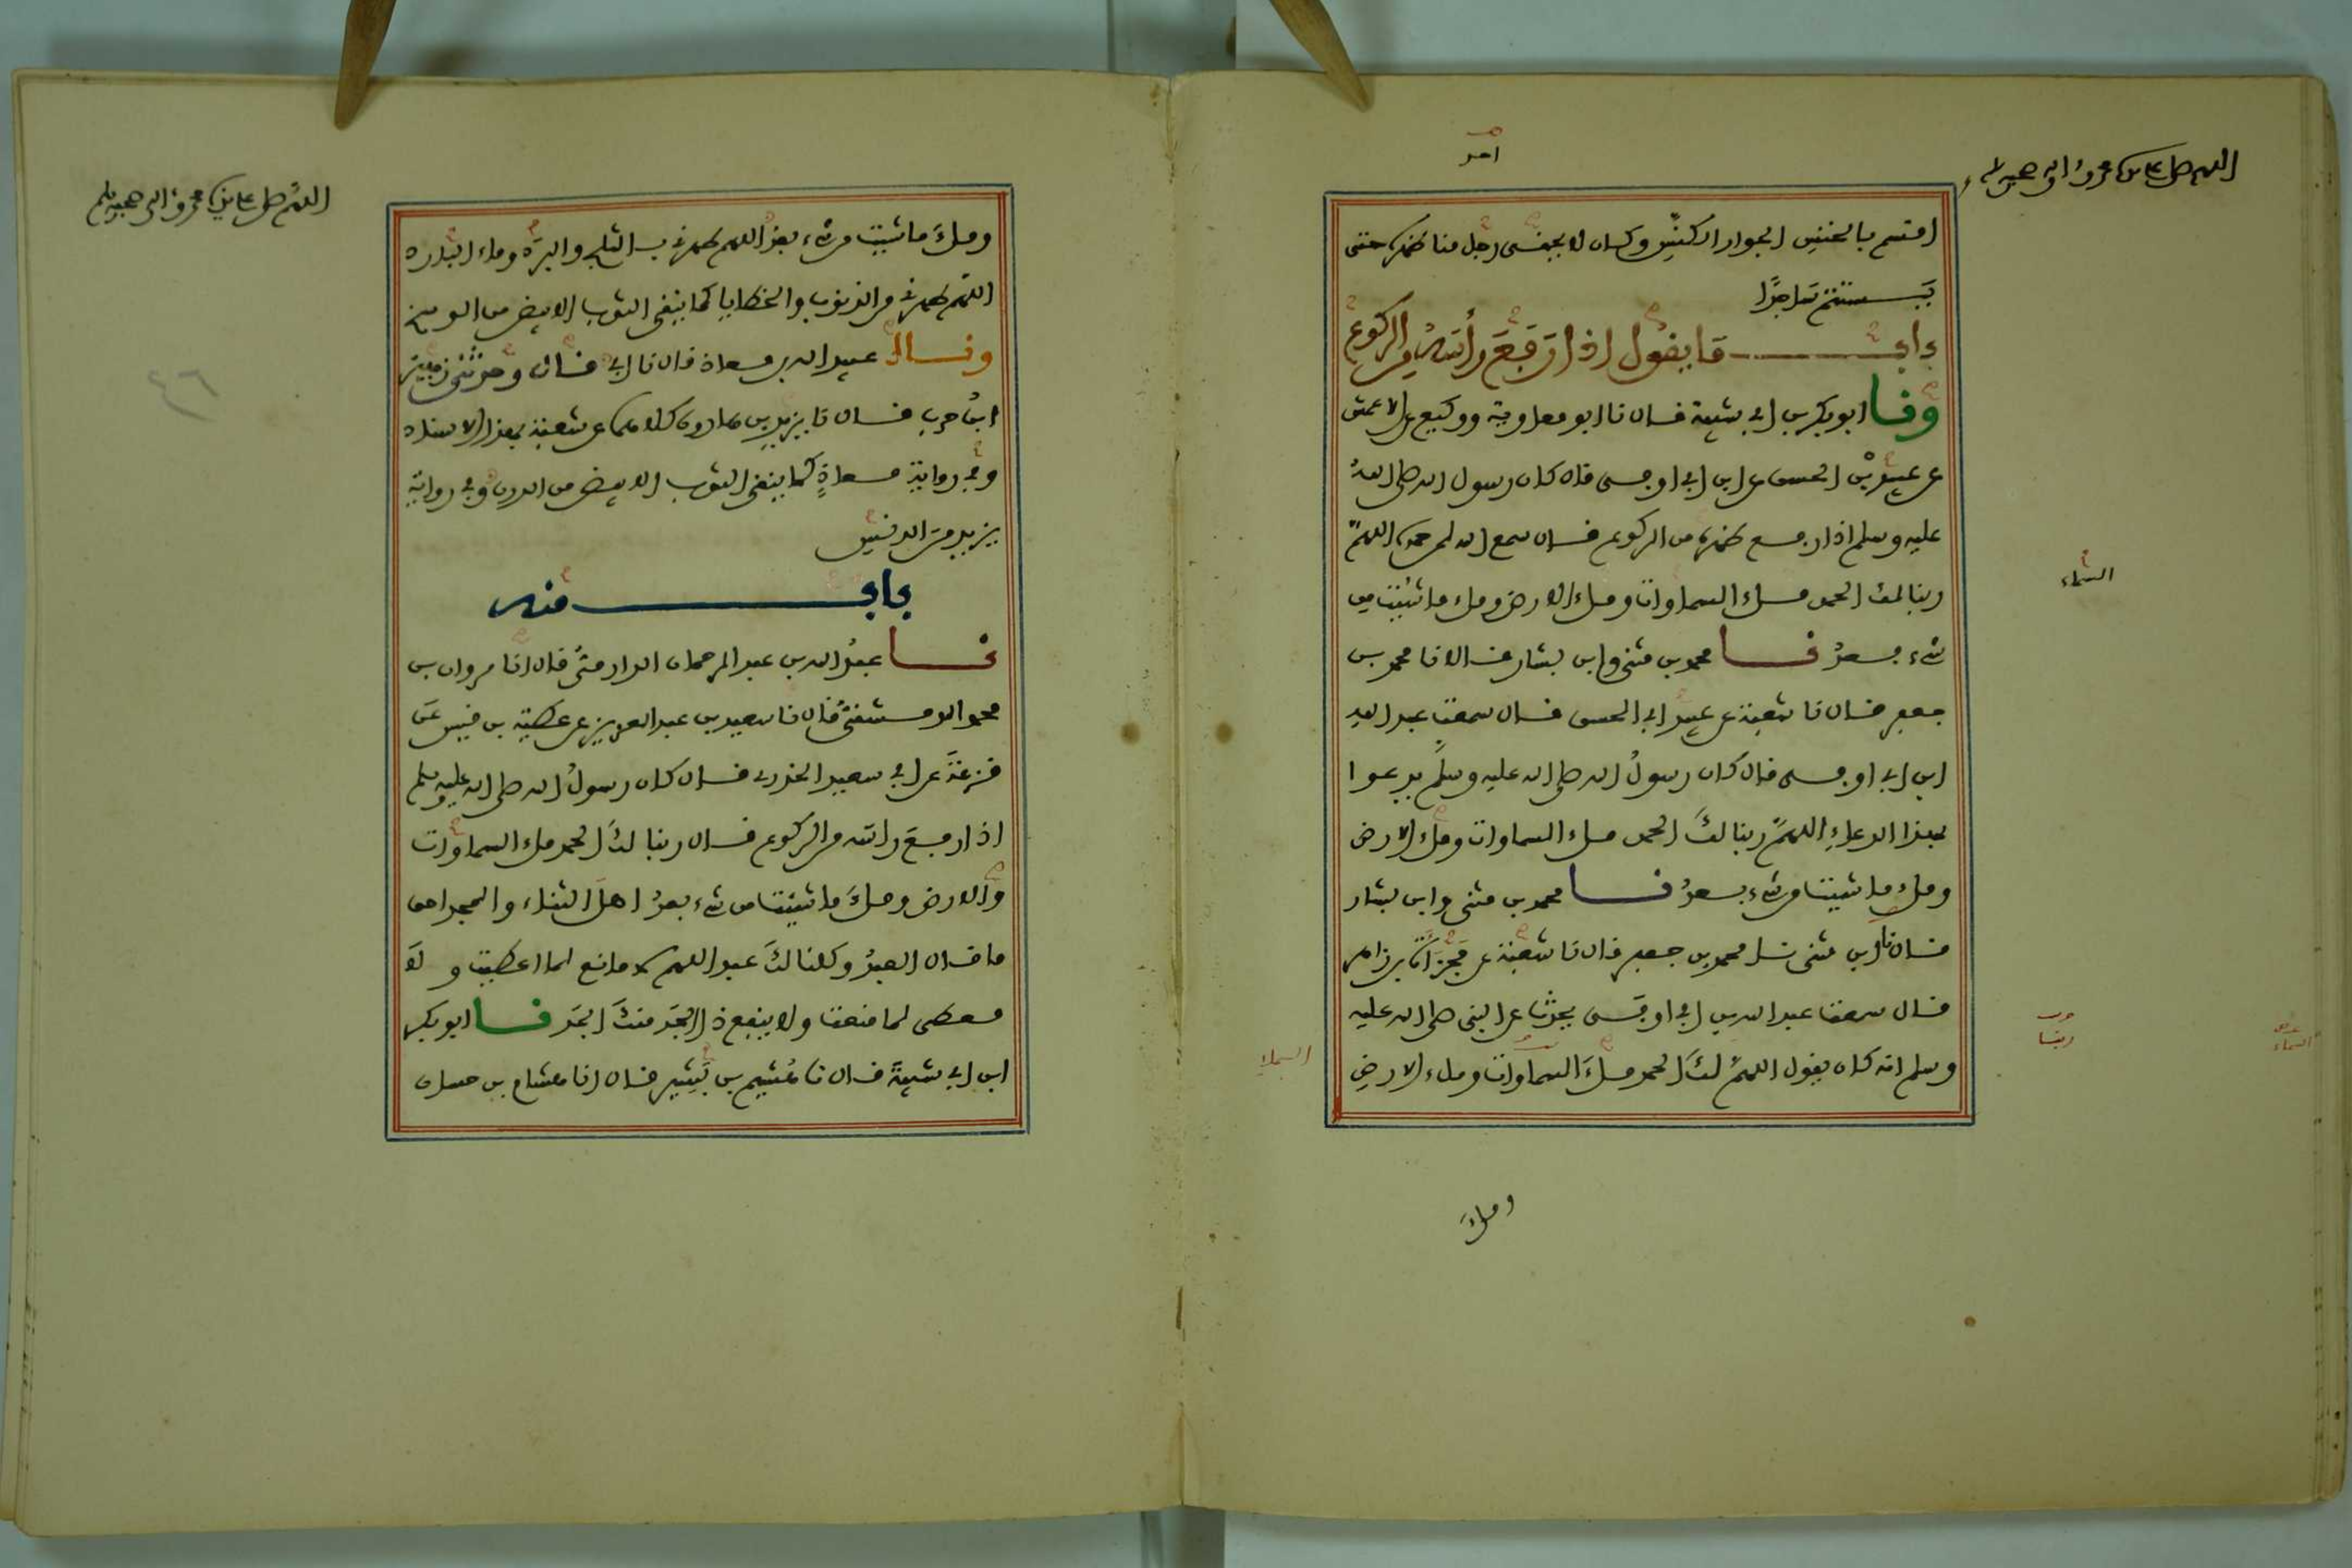 اللهم صل على سيدنا محمد وآله وصحبه وسلم
احد
اقسم بالخنس الجوار الكنس وكان لا يحني رجل منا ظهره حتى
يستتم ساجدا
باب ما يقول اذا رفع رأسه من الركوع
ونا ابو بكر بن ابي شيبة قال نا ابو معاوية ووكيع عن الاعمش
عن عبيد بن الحسن عن ابن ابي اوفى قال كان رسول الله صلى الله
عليه وسلم اذا رفع ظهره من الركوع قال سمع الله لمن حمده اللهم
ربنا لك الحمد ملء السماوات وملء الارض وملء ما شئت من
السماء
شيء بعد نا محمد بن مثنى وابن بشار قالا نا محمد بن
جعفر قال نا شعبة عن عبيد ابي الحسن قال سمعت عبد الله
ابن ابي اوفى قال كان رسول الله صلى الله عليه وسلم يدعوا
بهذا الدعاء اللهم ربنا لك الحمد ملء السماوات وملء الارض
وملء ما شئت من شيء بعد نا محمد بن مثنى وابن بشار
قال ابن مثنى نا محمد بن جعفر قال نا شعبة عن مجزأة بن زاهر
قال سمعت عبد الله بن ابي اوفى يحدث عن النبي صلى الله عليه
ربنا
السماء
وسلم انه كان يقول اللهم لك الحمد ملء السماوات وملء الارض
السماء
وملء
اللهم صل على سيدنا محمد وآله وصحبه وسلم
وملء ما شئت من شيء بعد اللهم طهرني بالثلج والبرد وماء البارد
اللهم طهرني من الذنوب والخطايا كما ينقى الثوب الابيض من الوسخ
وقال عبيد الله بن معاذ قال نا ابي قال وحدثني زهير
٤٦
ابن حرب قال نا يزيد بن هارون كلاهما عن شعبة بهذا الاسناد
وفي رواية معاذ كما ينقى الثوب الابيض من الدرن وفي رواية
يزيد من الدنس
باب منه
نا عبد الله بن عبد الرحمان الدارمي قال انا مروان بن
محمد الدمشقي قال نا سعيد بن عبد العزيز عن عطية بن قيس عن
قزعة عن ابي سعيد الخدري قال كان رسول الله صلى الله عليه وسلم
اذا رفع راسه من الركوع قال ربنا لك الحمد ملء السماوات
والارض وملء ما شئت من شيء بعد اهل الثناء والمجد احق
ما قال العبد وكلنا لك عبد اللهم لا مانع لما اعطيت ولا
معطي لما منعت ولا ينفع ذا الجد منك الجد نا ابو بكر
ابن ابي شيبة قال نا هشيم بن بشير قال انا هشام بن حسان